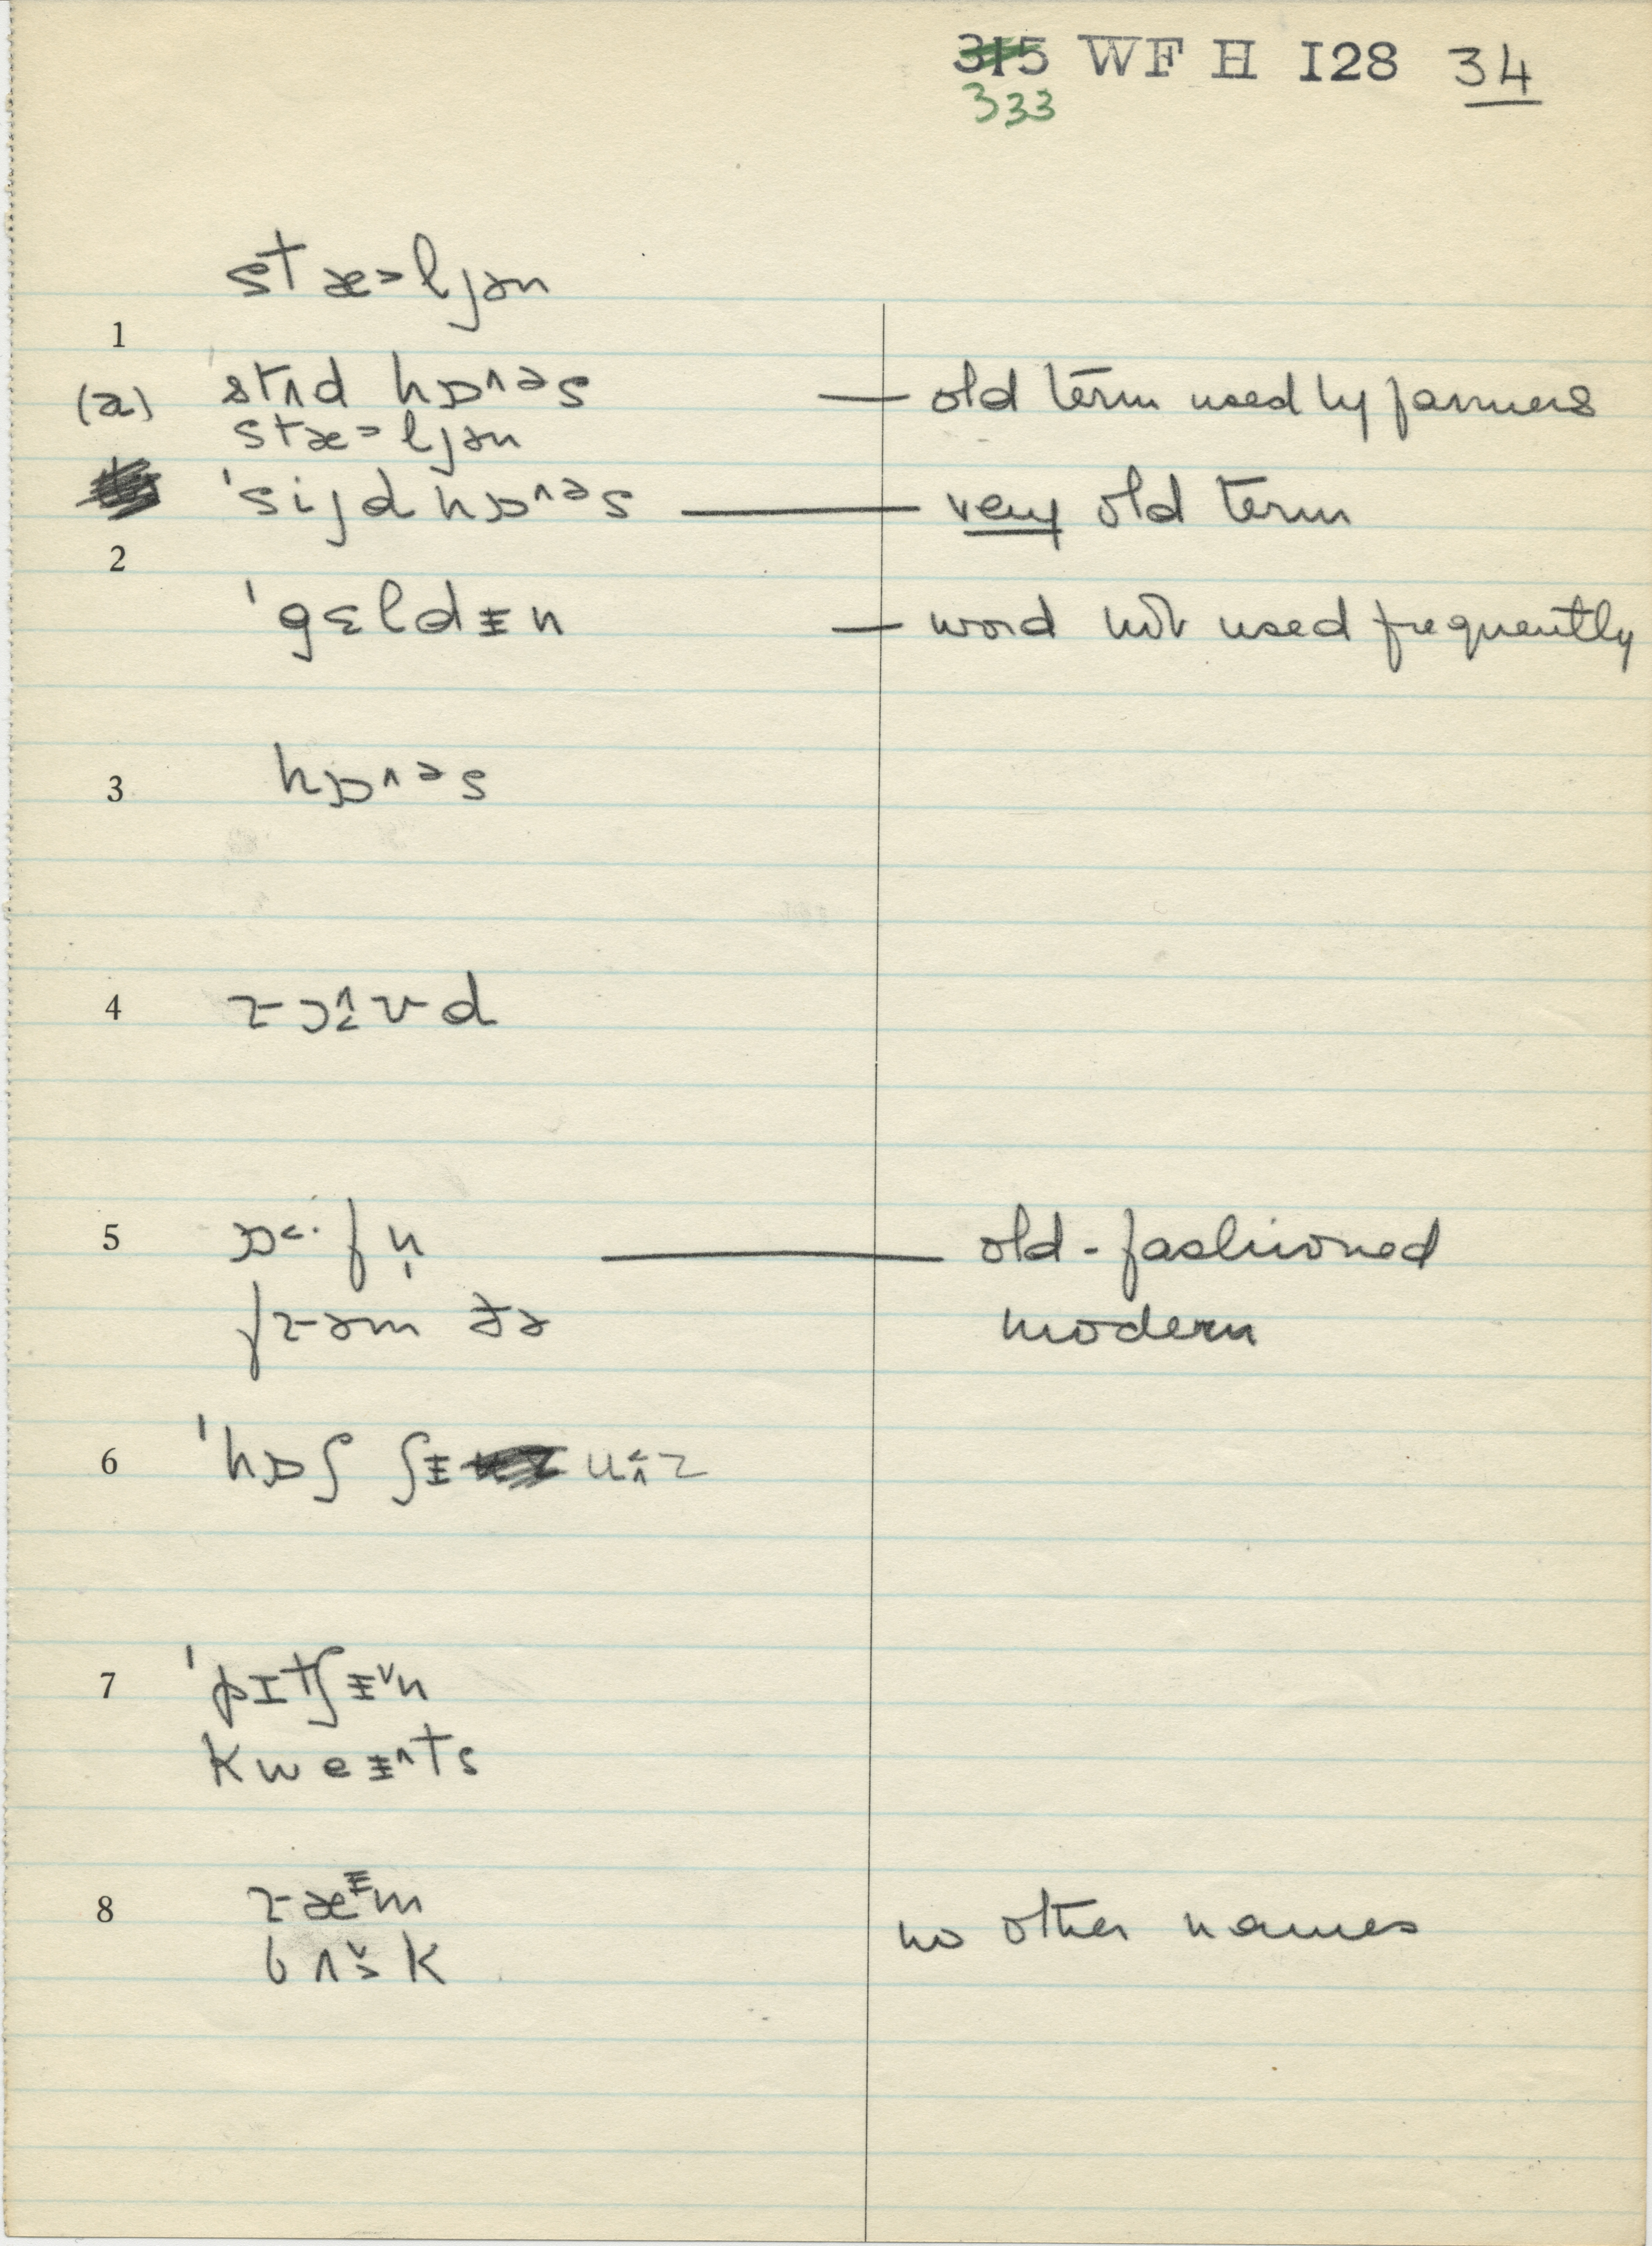 315 WF H I28 34
333
stæ˃ljən
1
(a) stʌd hɒ^əs — old term used by farmers
stæ˃ljən
ˈsijd hɒ^əs — very old term
2
ˈgɛldɪn — word not used frequently
3 hɒ^əs
4
5 ɒ˂· fn̩ — old-fashioned
frəm ðə modern
6 ˈhɒʃ ʃɨ
7 ˈpɪtʃɨˇn
kweɨ^ts
8 ræᵻm
bʌk no other names